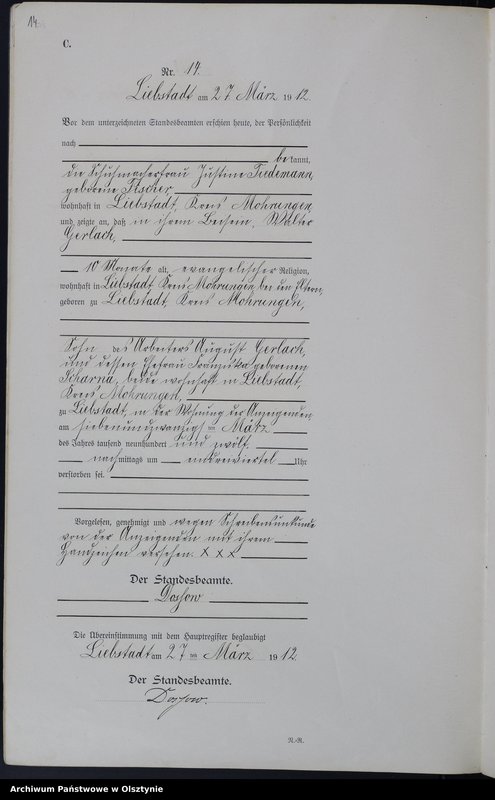 14.
C.
Nr. 14.
Liebstadt am 27 März 1912.
Vor dem unterzeichneten Standesbeamten erschien heute, der Persönlichkeit
nach
bekannt,
die Schuhmacherfrau Justine Tiedemann,
geborene Fischer,
wohnhaft in Liebstadt, Kreis Mohrungen,
und zeigte an, daß in ihrem Beisein, Walter
Gerlach,
10 Monate alt, evangelischer Religion,
wohnhaft in Liebstadt Kreis Mohrungen bei den Eltern,
geboren zu Liebstadt, Kreis Mohrungen,
Sohn des Arbeiters August Gerlach,
und dessen Ehefrau Franziska geborenen
Scharna, beide wohnhaft in Liebstadt,
Kreis Mohrungen,
zu Liebstadt, in der Wohnung der Anzeigenden
am siebenundzwanzigsten März
des Jahres tausend neunhundert und zwölf
nachmittags um eindreiviertel Uhr
verstorben sei.
Vorgelesen, genehmigt und wegen Schreibensunkunde
von der Anzeigenden mit ihrem
Handzeichen versehen. X X X
Der Standesbeamte.
Der Übereinstimmung mit dem Hauptregister beglaubigt
Liebstadt am 27 ten März 1912.
Der Standesbeamte.
N.-R.
Archiwum Państwowe w Olsztynie